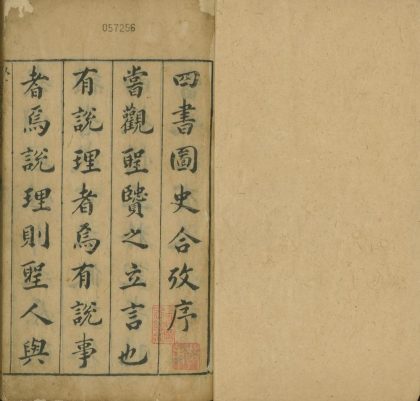 057256
四書圖史合攷序
嘗觀聖贒之立言也
有說理者焉有說事
者焉說理則聖人與